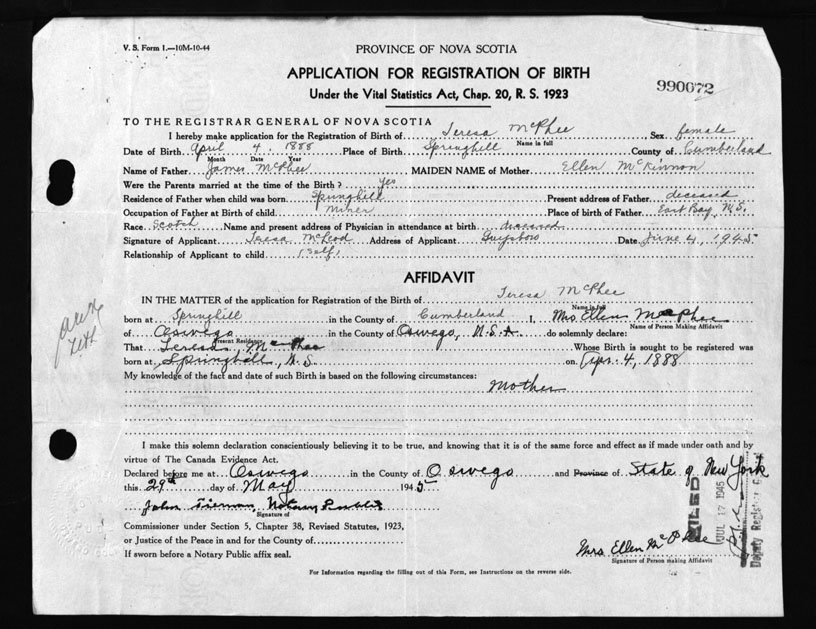 V. S. Form 1.—10M-10-44
PROVINCE OF NOVA SCOTIA
APPLICATION FOR REGISTRATION OF BIRTH
990072
Under the Vital Statistics Act, Chap. 20, R. S. 1923
TO THE REGISTRAR GENERAL OF NOVA SCOTIA
I hereby make application for the Registration of Birth of Teresa McPhee Sex female
Name in full
Date of Birth April 4, 1888 Place of Birth Springhill County of Cumberland
Month Date Year
Name of Father James McPhee MAIDEN NAME of Mother Ellen McKinnon
Were the Parents married at the time of the Birth? Yes
Residence of Father when child was born Springhill Present address of Father deceased
Occupation of Father at Birth of child Miner Place of birth of Father East Bay, N.S.
Race Scotch Name and present address of Physician in attendance at birth deceased
Signature of Applicant Teresa McLeod Address of Applicant Guysboro Date June 4, 1945
Relationship of Applicant to child (Self)
AFFIDAVIT
IN THE MATTER of the application for Registration of the Birth of Teresa McPhee
Name in full
born at Springhill in the County of Cumberland I, Mrs. Ellen McPhee
Name of Person Making Affidavit
of Oswego in the County of Oswego, U.S.A. do solemnly declare:
Present Residence
That Teresa McPhee Whose Birth is sought to be registered was
born at Springhill, N.S. on Apr. 4, 1888
My knowledge of the fact and date of such Birth is based on the following circumstances:
Mother
I make this solemn declaration conscientiously believing it to be true, and knowing that it is of the same force and effect as if made under oath and by
virtue of The Canada Evidence Act.
Declared before me at Oswego in the County of Oswego and Province of State of New York
this 29th day of May 1945
John Tiernan, Notary Public
Signature of
Commissioner under Section 5, Chapter 38, Revised Statutes, 1923,
or Justice of the Peace in and for the County of
If sworn before a Notary Public affix seal.
FILED
JUL 17 1945
Deputy Registrar G
Mrs Ellen McPhee
Signature of Person making Affidavit
For Information regarding the filling out of this Form, see Instructions on the reverse side.